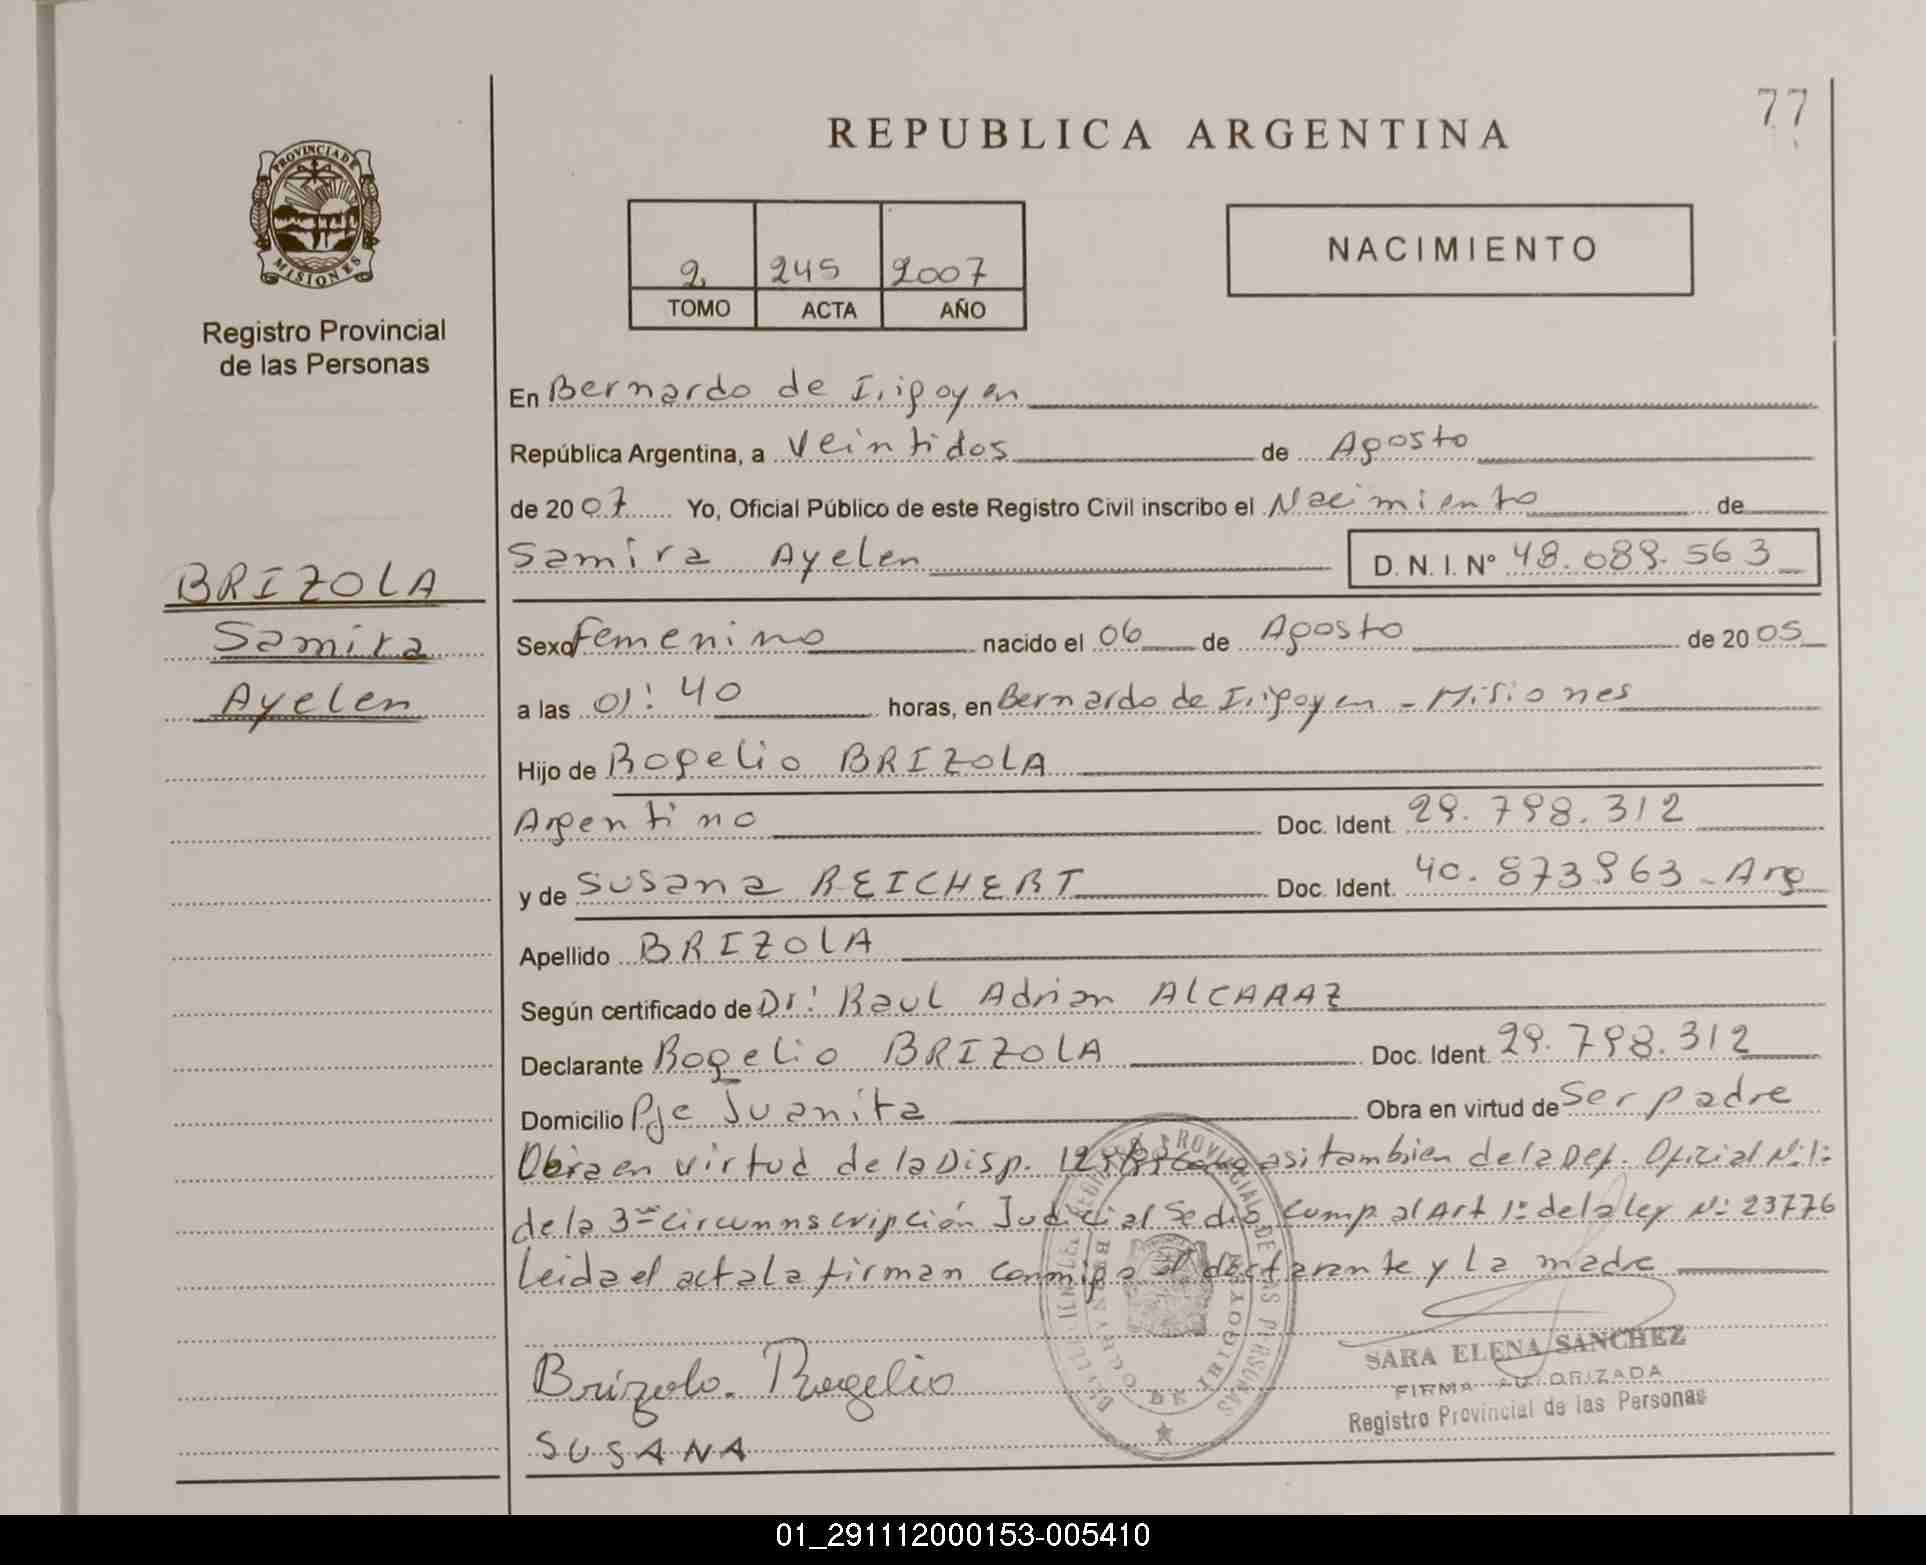 77
REPUBLICA ARGENTINA
PROVINCIA DE
MISIONES
Registro Provincial
de las Personas
2 245 2007
TOMO ACTA AÑO
NACIMIENTO
En Bernardo de Irigoyen
República Argentina, a Veintidos de Agosto
de 2007 Yo, Oficial Público de este Registro Civil inscribo el Nacimiento de
Samira Ayelen D. N. I. Nº 48.089.563
BRIZOLA
Samira
Ayelen
Sexo Femenino nacido el 06 de Agosto de 2005
a las 01:40 horas, en Bernardo de Irigoyen - Misiones
Hijo de Rogelio BRIZOLA
Argentino Doc. Ident. 29.798.312
y de Susana REICHERT Doc. Ident. 40.873963 - Arg
Apellido BRIZOLA
Según certificado de Dr: Raul Adrian ALCARAZ
Declarante Rogelio BRIZOLA Doc. Ident. 29.798.312
Domicilio Pje Juanita Obra en virtud de Ser padre
Obra en virtud de la Disp. asi tambien de la Def. Oficial Nº:1:
de la 3ra circunnscripción Judicial Se dio cump al Art 1º de la ley Nº 23776
Leida el acta la firman conmigo el declarante y la madre
Brizola. Rogelio
SUSANA
SARA ELENA SANCHEZ
FIRMA AUTORIZADA
Registro Provincial de las Personas
REGISTRO PROVINCIAL DE LAS PERSONAS
BERNARDO DE IRIGOYEN
01_291112000153-005410